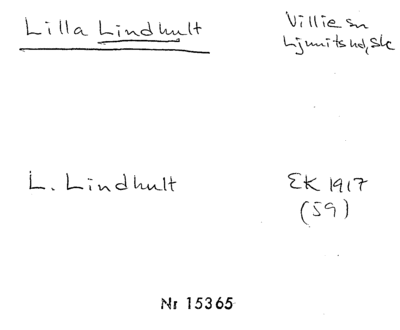 Lilla Lindhult
Villie sn
Ljunits hd, Sk
L. Lindhult
EK 1917
(59)
Nr 15365